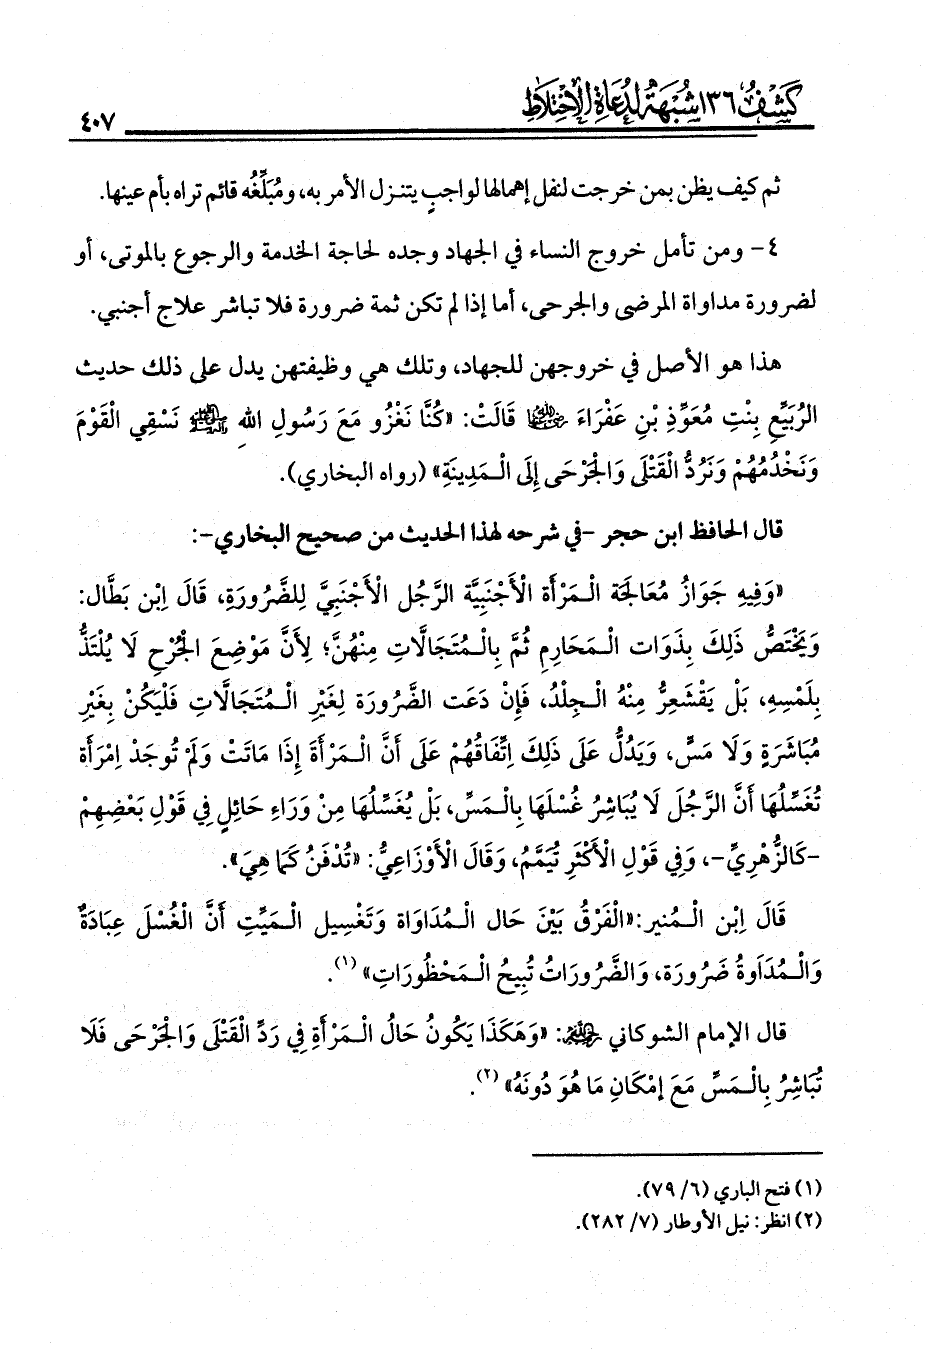 كشف ١٣٦ شبهة لدعاة الاختلاط
٤٠٧
ثم كيف يظن بمن خرجت لنفل إهمالها لواجبٍ يتنزل الأمر به، ومُبَلِّغُه قائم تراه بأم عينها.
٤- ومن تأمل خروج النساء في الجهاد وجده لحاجة الخدمة والرجوع بالموتى، أو
لضرورة مداواة المرضى والجرحى، أما إذا لم تكن ثمة ضرورة فلا تباشر علاج أجنبي.
هذا هو الأصل في خروجهن للجهاد، وتلك هي وظيفتهن يدل على ذلك حديث
الرُّبَيِّعِ بِنْتِ مُعَوِّذِ بْنِ عَفْرَاءَ قَالَتْ: «كُنَّا نَغْزُو مَعَ رَسُولِ اللهِ ﷺ نَسْقِي الْقَوْمَ
وَنَخْدُمُهُمْ وَنَرُدُّ الْقَتْلَى وَالْجَرْحَى إِلَى الْمَدِينَةِ» (رواه البخاري).
قال الحافظ ابن حجر -في شرحه لهذا الحديث من صحيح البخاري-:
«وَفِيهِ جَوَازُ مُعَالَجَة الْمَرْأَة الْأَجْنَبِيَّة الرَّجُل الْأَجْنَبِيَّ لِلضَّرُورَةِ، قَالَ اِبْن بَطَّال:
وَيَخْتَصُّ ذَلِكَ بِذَوَات الْمَحَارِم ثُمَّ بِالْمُتَجَالَّاتِ مِنْهُنَّ؛ لِأَنَّ مَوْضِعَ الْجُرْحِ لَا يُلْتَذُّ
بِلَمْسِهِ، بَلْ يَقْشَعِرُّ مِنْهُ الْجِلْدُ، فَإِنْ دَعَت الضَّرُورَة لِغَيْرِ الْمُتَجَالَّاتِ فَلْيَكُنْ بِغَيْرِ
مُبَاشَرَةٍ وَلَا مَسٍّ، وَيَدُلُّ عَلَى ذَلِكَ اِتِّفَاقُهُمْ عَلَى أَنَّ الْمَرْأَةَ إِذَا مَاتَتْ وَلَمْ تُوجَدْ اِمْرَأَة
تُغَسِّلُهَا أَنَّ الرَّجُلَ لَا يُبَاشِرُ غُسْلَهَا بِالْمَسِّ، بَلْ يُغَسِّلُهَا مِنْ وَرَاءِ حَائِلٍ فِي قَوْلِ بَعْضِهِمْ
-كَالزُّهْرِيِّ-، وَفِي قَوْلِ الْأَكْثَرِ تُيَمَّمُ، وَقَالَ الْأَوْزَاعِيُّ: «تُدْفَنُ كَمَا هِيَ».
قَالَ اِبْن الْمُنير:«الْفَرْقُ بَيْنَ حَال الْمُدَاوَاة وَتَغْسِيل الْمَيِّتِ أَنَّ الْغُسْلَ عِبَادَةٌ
وَالْمُدَاوَةُ ضَرُورَة، وَالضَّرُورَاتُ تُبِيحُ الْمَحْظُورَاتِ»(١).
قال الإمام الشوكاني رحمه الله: «وَهَكَذَا يَكُونُ حَالُ الْمَرْأَةِ فِي رَدِّ الْقَتْلَى وَالْجَرْحَى فَلَا
تُبَاشِرُ بِالْمَسِّ مَعَ إِمْكَانِ مَا هُوَ دُونَهُ»(٢).
(١) فتح الباري (٦/ ٧٩).
(٢) انظر: نيل الأوطار (٧/ ٢٨٢).